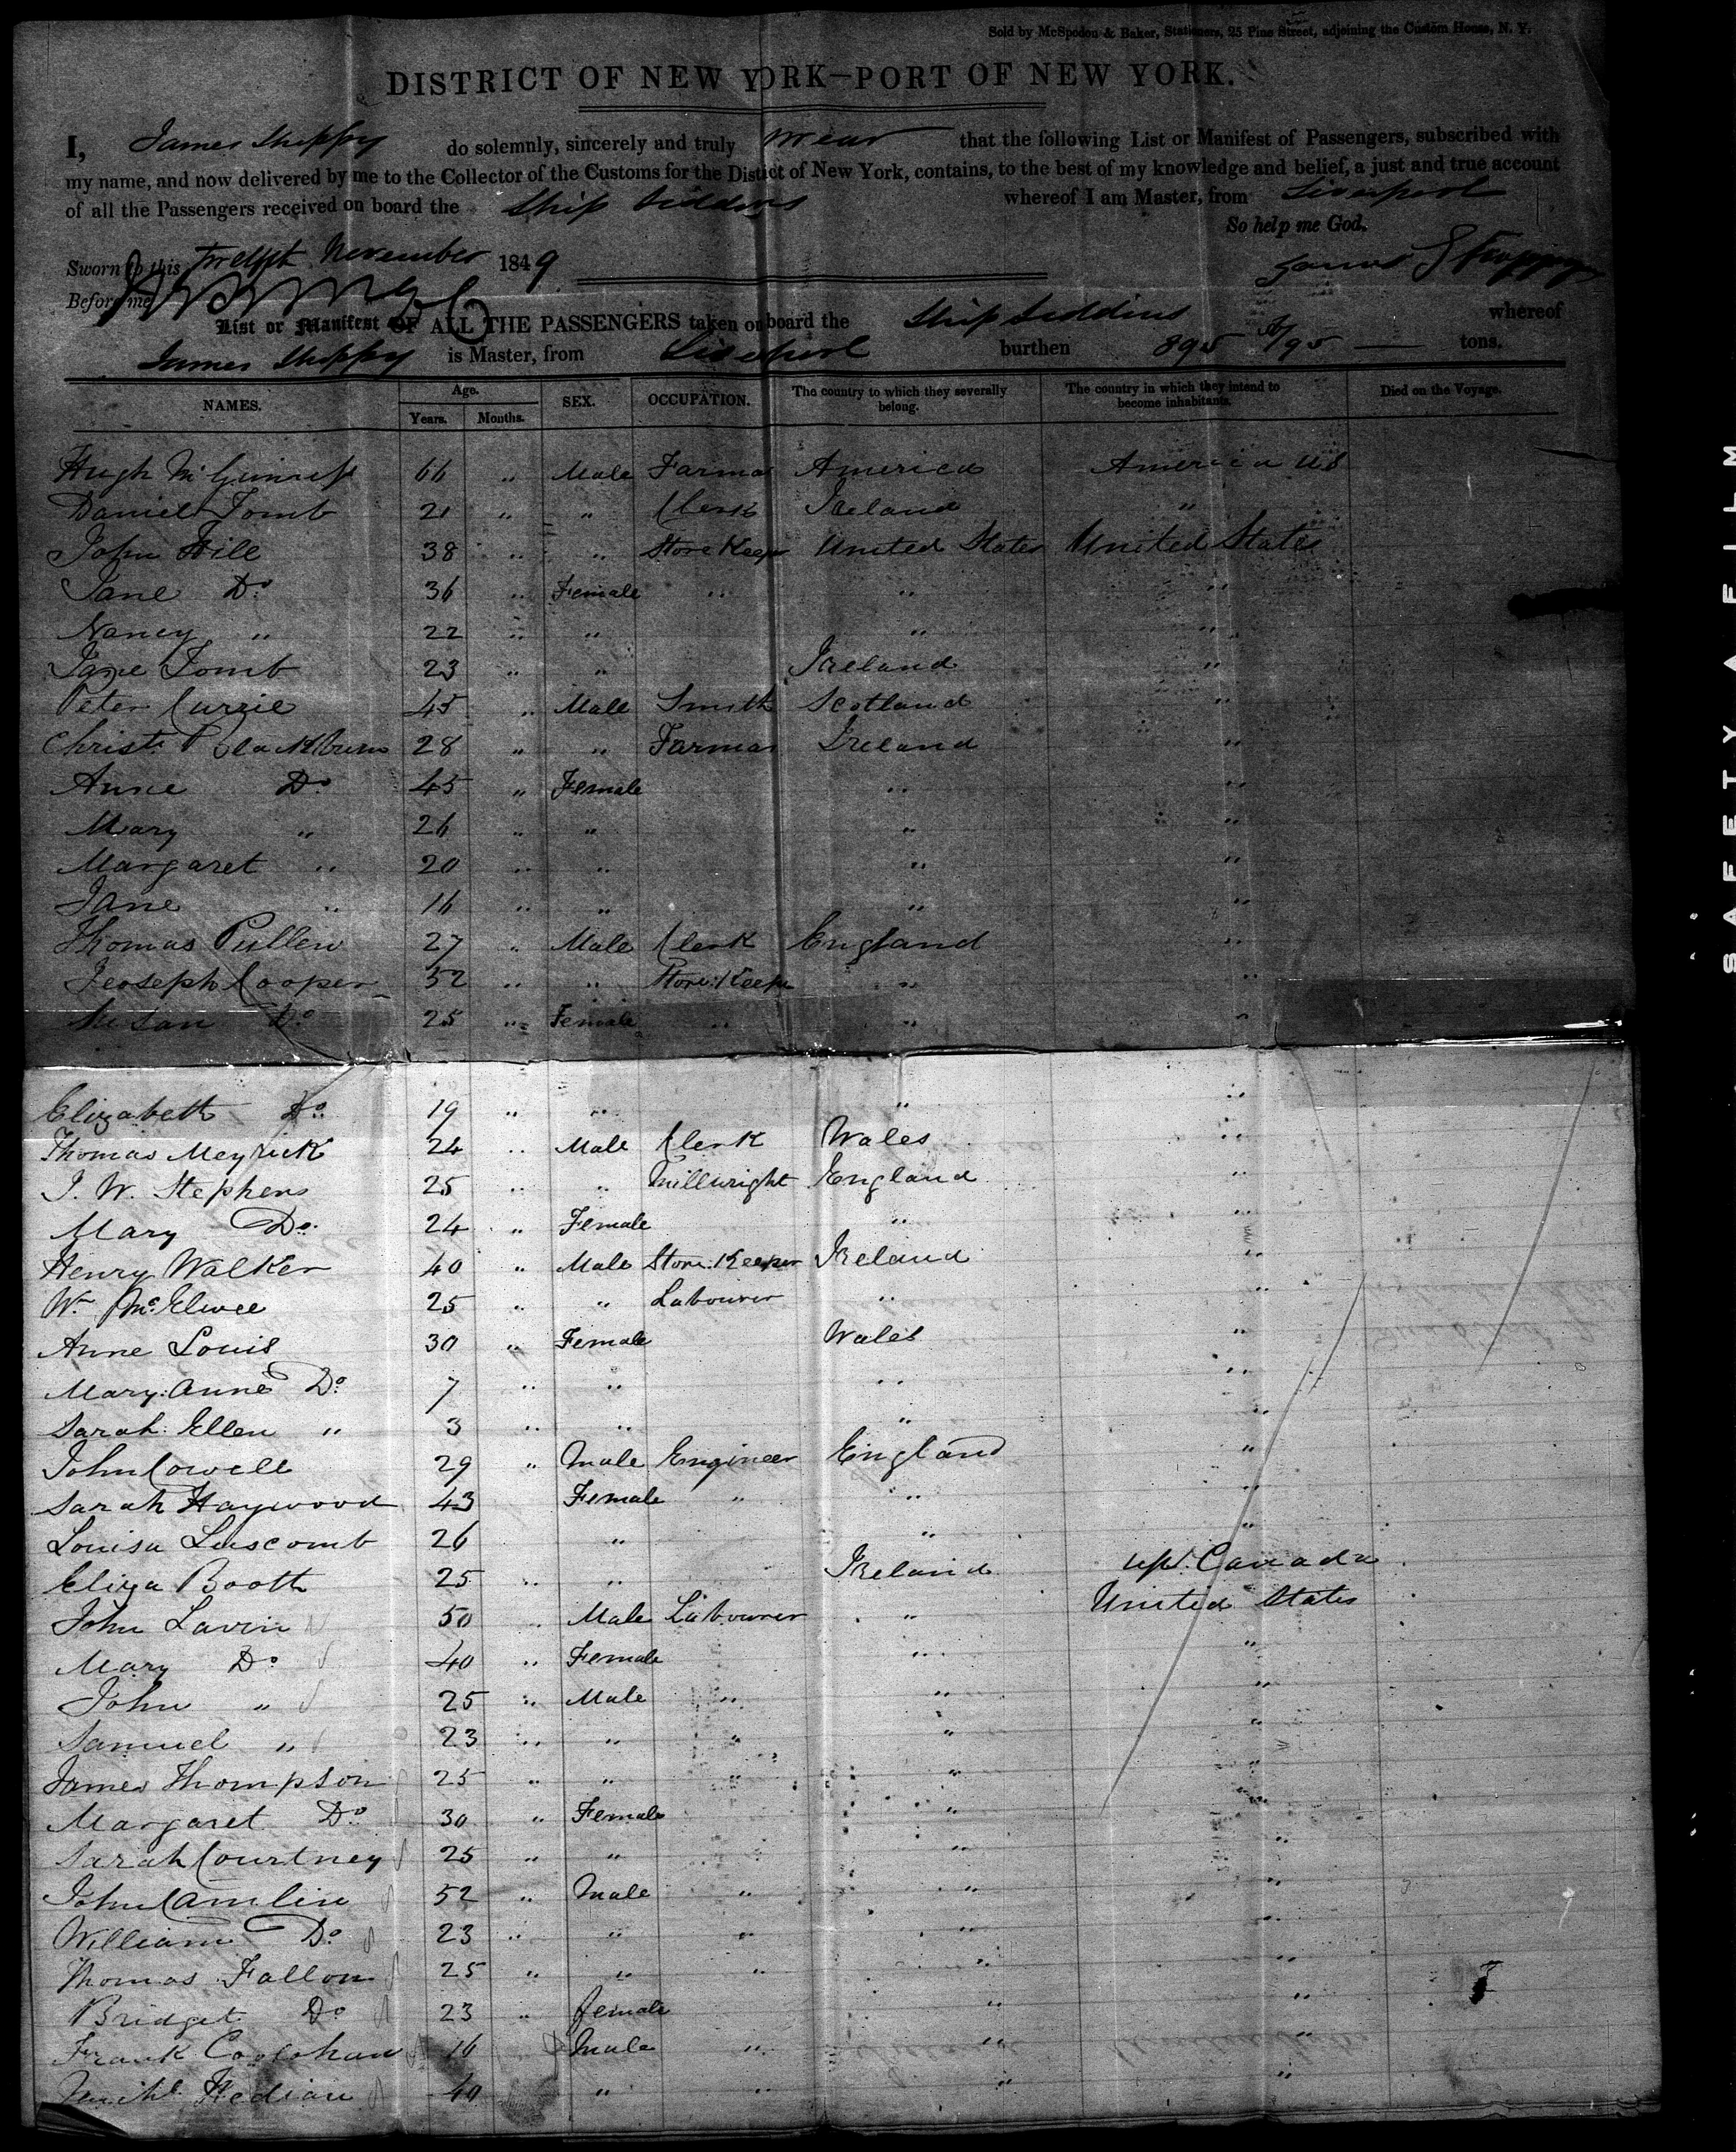 Sold by McSpedon & Baker, Stationers, 25 Pine Street, adjoining the Custom House, N. Y.
DISTRICT OF NEW YORK—PORT OF NEW YORK.
I, James do solemnly, sincerely and truly swear that the following List or Manifest of Passengers, subscribed with
my name, and now delivered by me to the Collector of the Customs for the District of New York, contains, to the best of my knowledge and belief, a just and true account
of all the Passengers received on board the Ship Siddons whereof I am Master, from Liverpool
So help me God.
Sworn to this Twelfth November 1849
Before me
James
List or Manifest OF ALL THE PASSENGERS taken on board the Ship Siddons whereof
James is Master, from Liverpool burthen 895 /95 — tons.
NAMES. Age. SEX. OCCUPATION. The country to which they severally belong. The country in which they intend to become inhabitants. Died on the Voyage.
Years. Months.
Hugh 66 " Male Farmer America America U S
Daniel Tomb 21 " " Clerk Ireland "
John Hill 38 " " Store Keeper United States United States
Jane Do 36 " Female " " "
Nancy " 22 " " " "
Jane Tomb 23 " " Ireland "
Peter Currie 45 " Male Smith Scotland "
Christ. Blackburn 28 " " Farmer Ireland "
Anne Do 45 " Female " "
Mary " 26 " " " "
Margaret " 20 " " " "
Jane " 16 " " " "
Thomas Pullen 27 " Male Clerk England "
Jeoseph Cooper 32 " " Store Keeper " "
Susan Do 25 " Female " " "
Elizabeth Do 19 " " " "
Thomas Meyrick 24 " Male Clerk Wales "
J. W. Stephens 25 " " Millwright England "
Mary Do. 24 " Female " "
Henry Walker 40 " Male Store Keeper Ireland "
Wm McElwee 25 " " Labourer " "
Anne Louis 30 " Female Wales "
Mary Anne Do 7 " " " "
Sarah Ellen " 3 " " " "
John Cowell 29 " Male Engineer England "
Sarah Haywood 43 Female " " "
Louisa Luscomb 26 " " "
Eliza Booth 25 " " Ireland up. Canada
John Lavin 50 " Male Labourer " United States
Mary Do 40 " Female " "
John " 25 " Male " " "
Samuel " 23 " " " " "
James Thompson 25 " " " " "
Margaret Do 30 " Female " "
Sarah Courtney 25 " " " "
John Camlin 52 " Male " " "
William Do 23 " " " " "
Thomas Fallon 25 " " " " "
Bridget Do 23 " female " "
Frank 16 Male " " "
Michl. Hedian 40 " " " "
SAFETY FILM